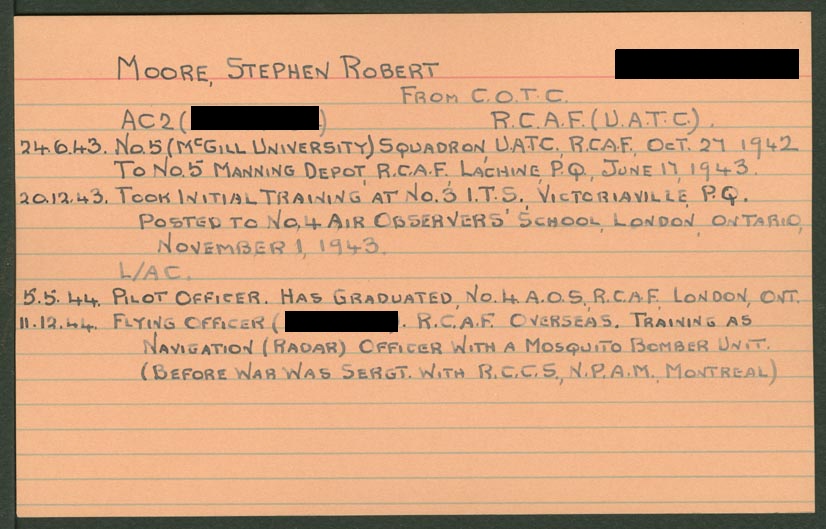 MOORE, STEPHEN ROBERT
FROM C.O.T.C.
AC2 ( ) R.C.A.F. (U.A.T.C.).
24.6.43. NO.5 (MCGILL UNIVERSITY) SQUADRON, U.A.T.C. R.C.A.F., OCT. 27 1942
TO NO.5 MANNING DEPOT, R.C.A.F. LACHINE, P.Q., JUNE 17, 1943.
20.12.43. TOOK INITIAL TRAINING AT NO.3 I.T.S., VICTORIAVILLE, P.Q.
POSTED TO NO.4 AIR OBSERVERS' SCHOOL, LONDON, ONTARIO,
NOVEMBER 1, 1943.
L/AC.
5.5.44. PILOT OFFICER. HAS GRADUATED, NO.4 A.O.S., R.C.A.F. LONDON, ONT.
11.12.44. FLYING OFFICER ( . R.C.A.F. OVERSEAS. TRAINING AS
NAVIGATION (RADAR) OFFICER WITH A MOSQUITO BOMBER UNIT.
(BEFORE WAR WAS SERGT. WITH R.C.C.S., N.P.A.M., MONTREAL)